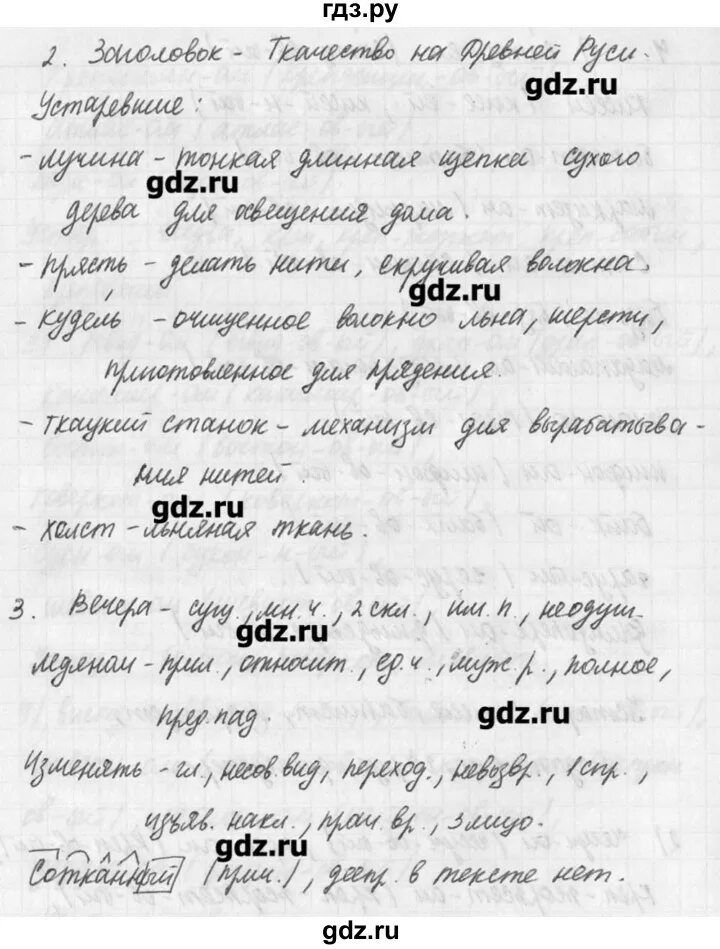 гдз.ру
2. Заголовок - Ткачество на Древней Руси.
gdz.ru
Устаревшие:
- лучина - тонкая длинная щепка сухого
gdz.ru
дерева для освещения дома.
- прясть - делать нити, скручивая волокна.
gdz.ru
- кудель - очищенное волокно льна, шерсти,
приготовленное для прядения.
- ткацкий станок - механизм для вырабатыва-
ния нитей.
gdz.ru
- холст - льняная ткань.
3. Вечера - сущ., мн.ч., 2 скл., им. п., неодуш.
gdz.ru
Ледяном - прил., относит., ед.ч., муж.р., полное,
пред. пад.
gdz.ru
Изменять - гл., несов. вид, переход., невозвр., 1 спр.,
изъяв. накл., прош. вр., 3 лицо.
gdz.ru
Сотканный (прич.), деепр. в тексте нет.
gdz.ru